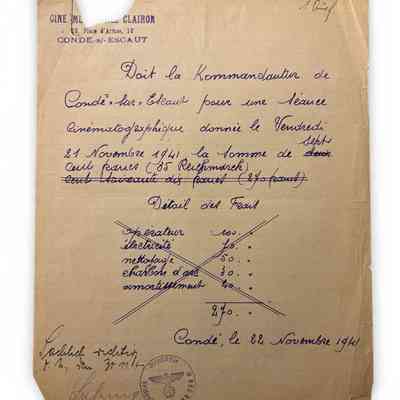 CINE-ME CLAIRON
Place d'Armes,
CONDÉ-s/-ESCAUT
Doit la Kommandantur de
Condé-sur-Escaut pour une séance
cinématographique donnée le Vendredi
21 Novembre 1941 la somme de deux sept
cents francs (35 Reichmarck)
cent soixante dix francs (270 francs)
Détail des Frais
opérateur 100. "
électricité 70. "
nettoyage 50. "
charbons d'arc 30. "
amortissement 20. "
270. "
Condé, le 22 Novembre 1941
Sachlich richtig